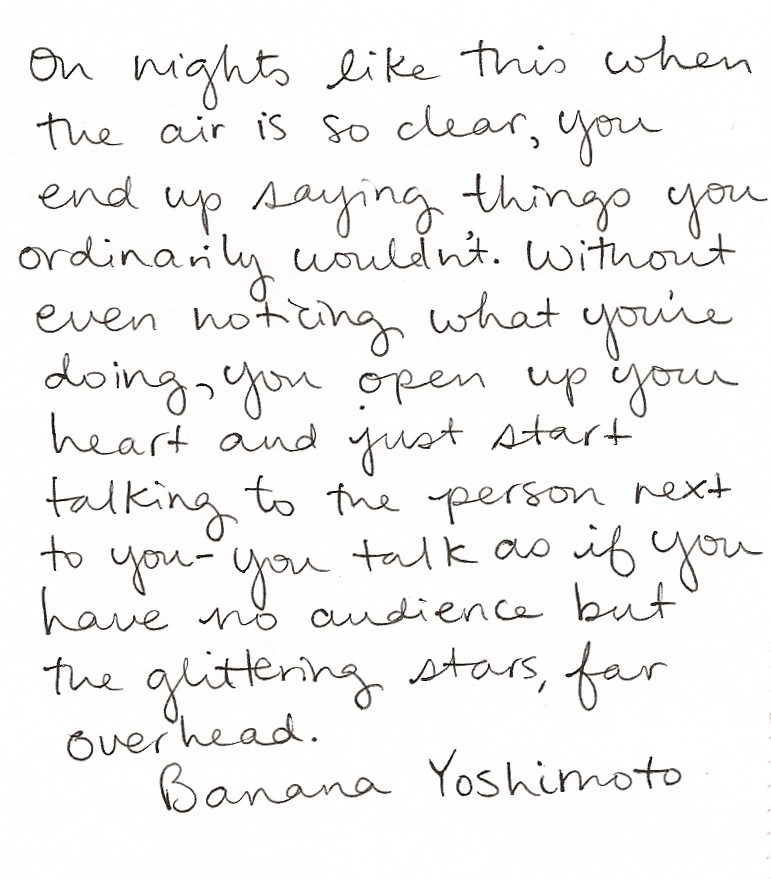 On nights like this when
the air is so clear, you
end up saying things you
ordinarily wouldn't. Without
even noticing what you're
doing, you open up your
heart and just start
talking to the person next
to you- you talk as if you
have no audience but
the glittering stars, far
overhead.
Banana Yoshimoto